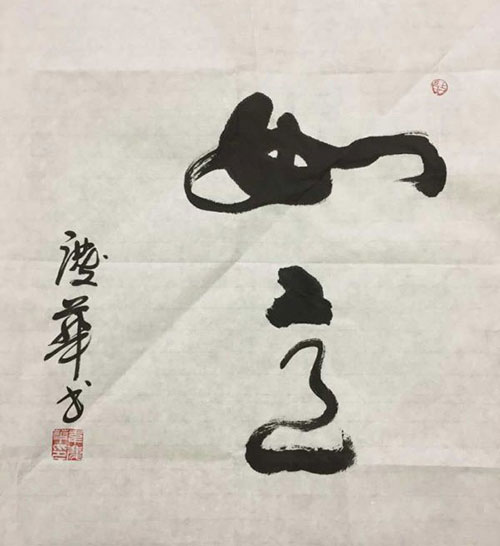 如意
慶華书